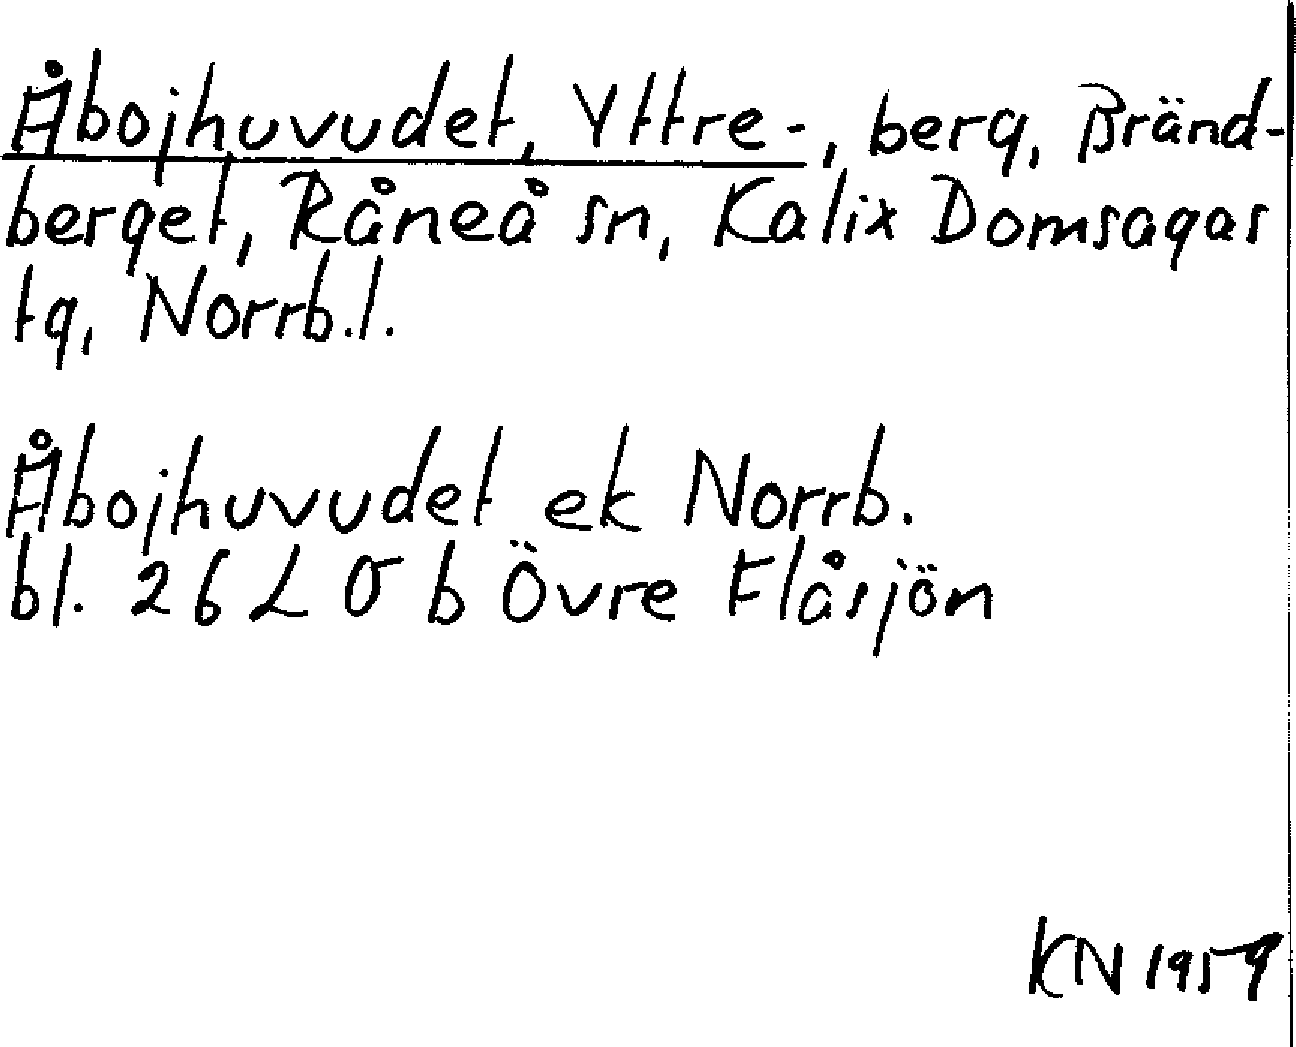 Åbojhuvudet, Yttre-, berg, Bränd-
berget, Råneå sn, Kalix Domsagas
tg, Norrb.l.
Åbojhuvudet ek Norrb.
bl. 26 L σ b Övre Flåsjön
KN 1959